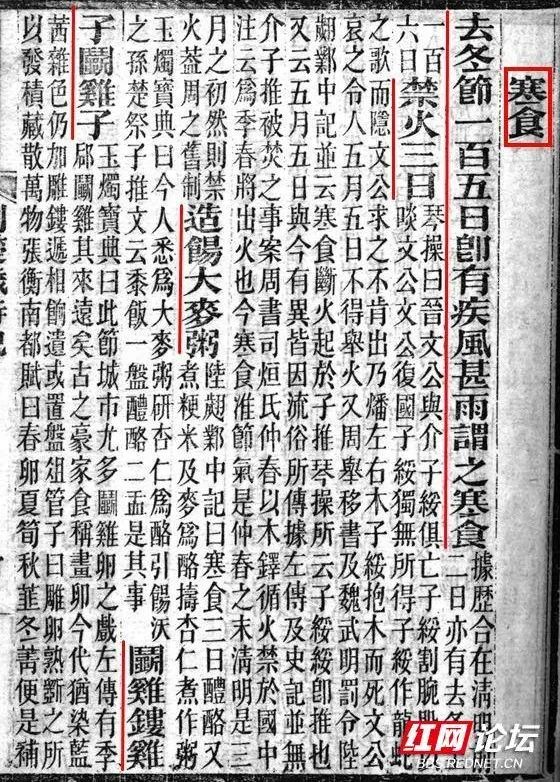 寒食
去冬節一百五日卽有疾風甚雨謂之寒食
據歷合在清明
二日亦有去冬
一百
六日
禁火三日
琴操曰晉文公與介子綏俱亡子綏割腕股
啖文公文公復國子綏獨無所得子綏作龍蛇
之歌而隱文公求之不肯出乃燔左右木子綏抱木而死文公
哀之令人五月五日不得舉火又周舉移書及魏武明罰令陸
翽鄴中記並云寒食斷火起於子推琴操所云子綏綏卽推也
又云五月五日與今有異皆因流俗所傳據左傳及史記並無
介子推被焚之事案周書司烜氏仲春以木鐸循火禁於國中
注云爲季春將出火也今寒食准節氣是仲春之末清明是三
月之初然則禁
火葢周之舊制
造餳大麥粥
陸翽鄴中記曰寒食三日醴酪又
煮粳米及麥爲酪擣杏仁煮作粥
玉燭寶典曰今人悉爲大麥粥研杏仁爲酪引餳沃
之孫楚祭子推文云黍飯一盤醴酪二盂是其事
鬭雞鏤雞
子鬭雞子
玉燭寶典曰此節城市尤多鬭雞卵之戲左傳有季
郈鬭雞其來遠矣古之豪家食稱畫卵今代猶染藍
茜雜色仍加雕鏤遞相餉遺或置盤俎管子曰雕卵熟斵之所
以發積藏散萬物張衡南都賦曰春卵夏筍秋韮冬菁便是補
红网论坛
BBS.REDNET.CN